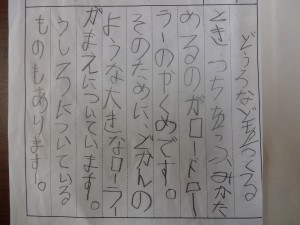 どうろなどをつくる
とき、つちをつよくかた
めるのがロードロー
ラーのやくめです。
そのために、どかんの
ような大きなローラー
がまえについています。
うしろについている
ものもあります。